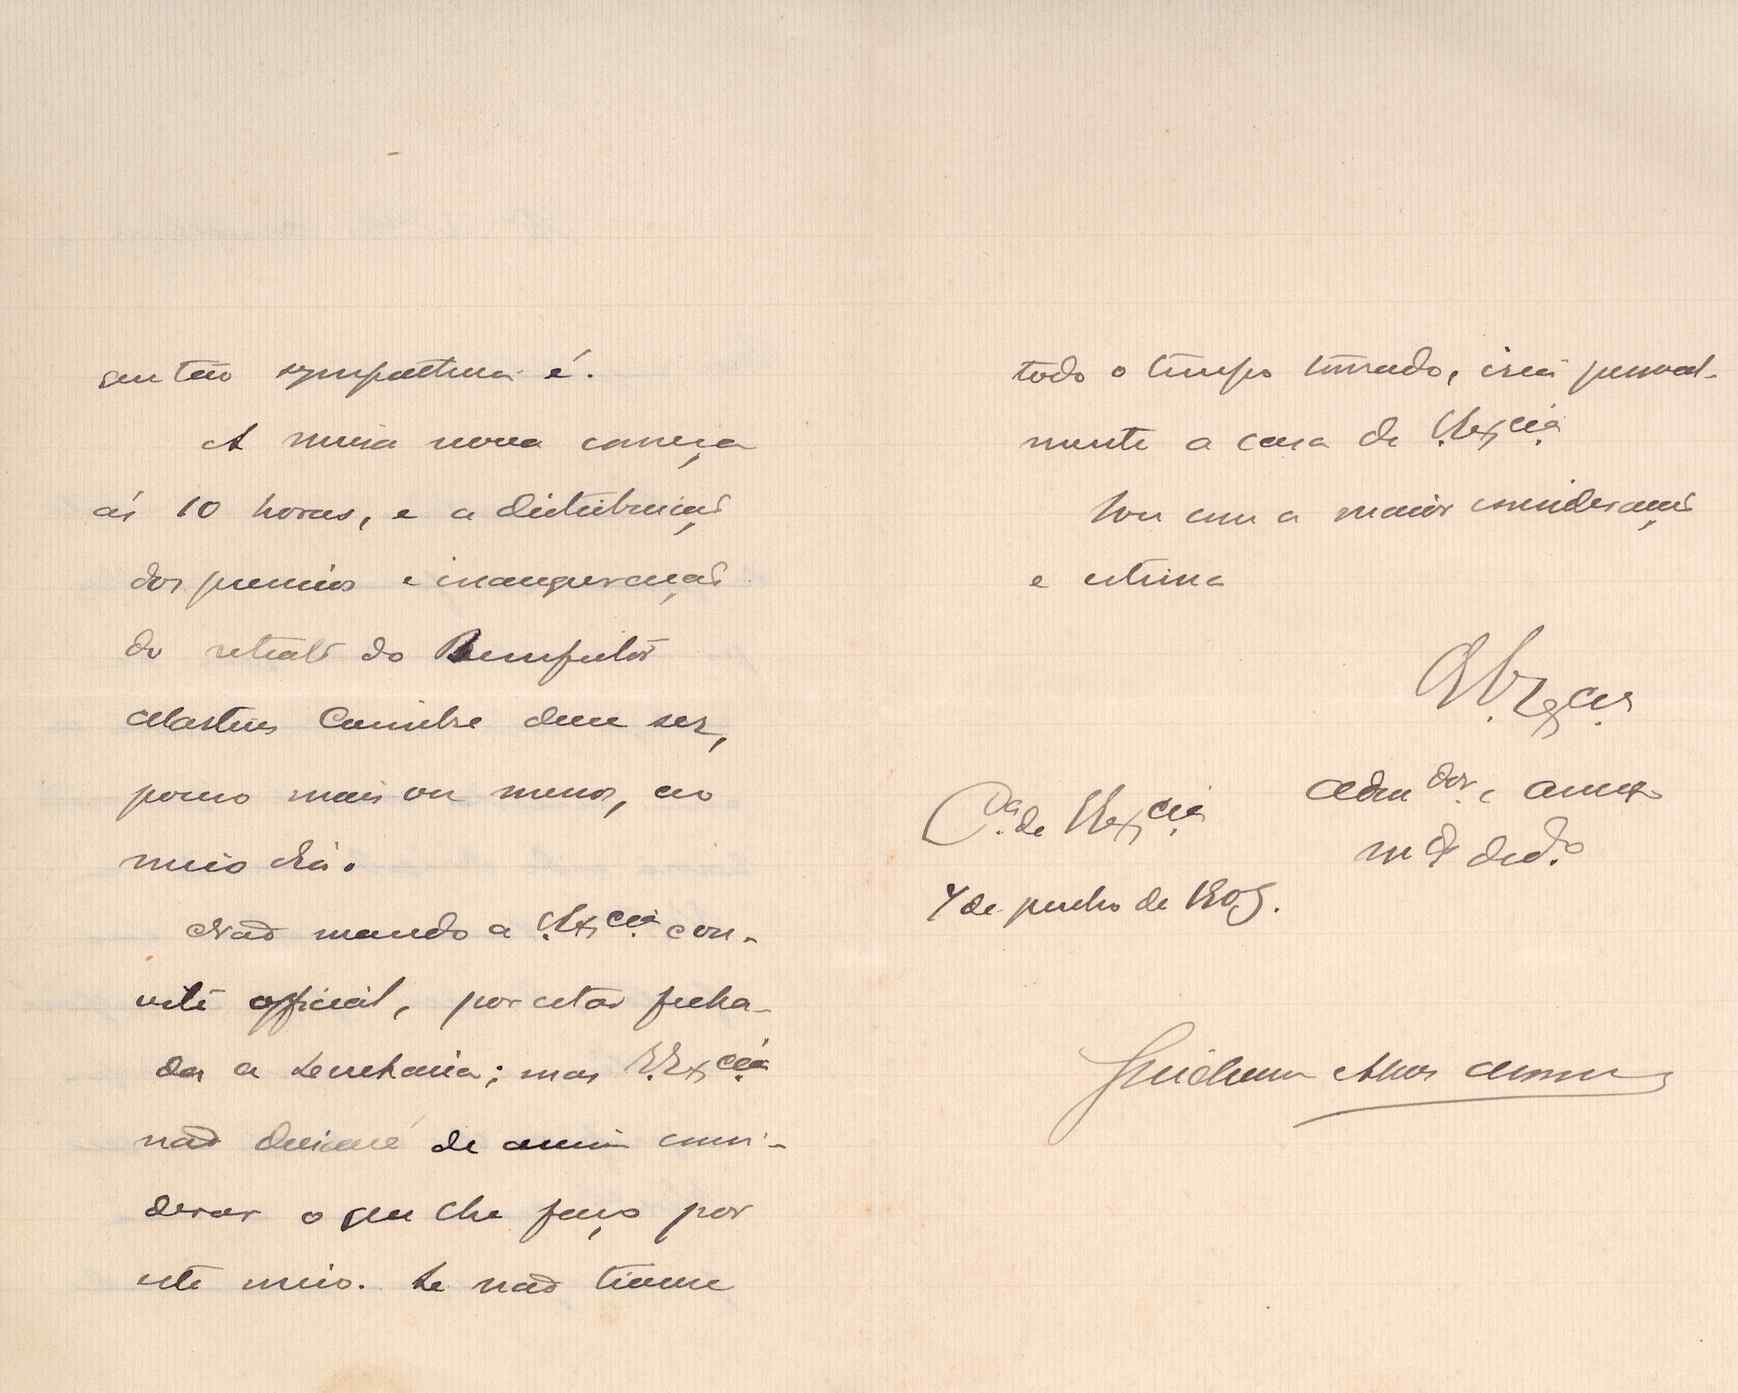 que tão sympathica é.
A missa nova começa
ás 10 horas, e a distribuição
dos premios e inauguração
do retrato do Bemfeitor
Martins Coimbra deve ser,
pouco mais ou menos, ao
meio dia.
Não mando a V. Ex.cia con-
vite official, por estar fecha-
da a Secretaria; mas V. Ex.cia
não deixará de assim consi-
derar o que lhe faço por
este meio. Se não tivesse
todo o tempo tomado, iria pessoal-
mente a casa de V. Ex.cia
Sou com a maior consideração
e estima
De V. Ex.cia
Adm.dor e amigo
m.to ded.o
C.a de V. Ex.cia
4 de junho de 1905.
Guilherme